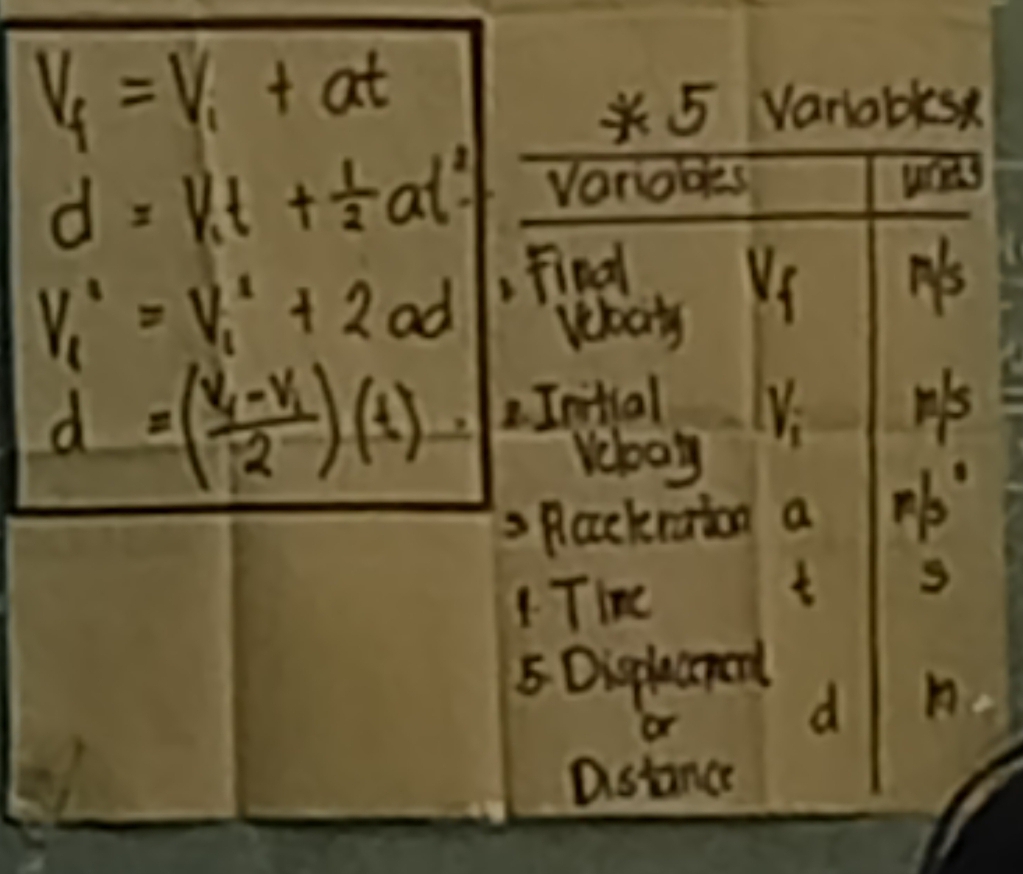 V_f = V_i + at
d = V_i t + 1/2 at²
V_f² = V_i² + 2ad
d = ((V_f - V_i)/2)(t)
* 5 Variables*
Variables units
1. Final Velocity V_f m/s
2. Initial Velocity V_i m/s
3. Acceleration a m/s²
4. Time t s
5. Displacement or Distance d m